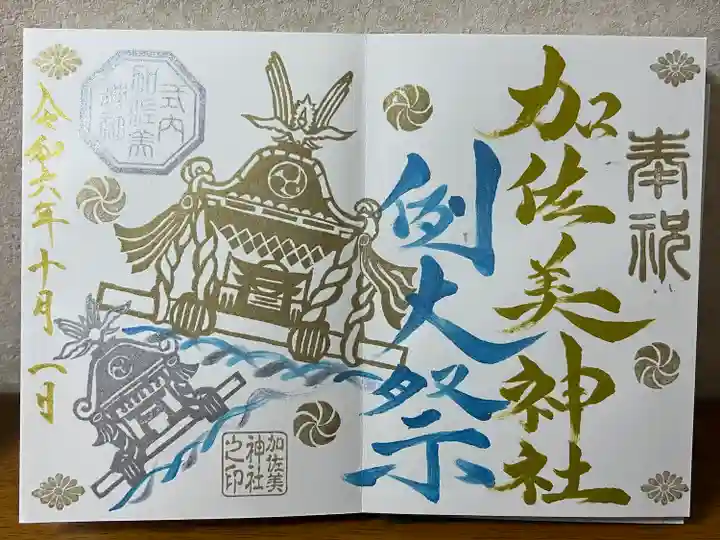 奉祝
加佐美神社
例大祭
式内
加佐美
神社
加佐美
神社
之印
令和六年十月一日